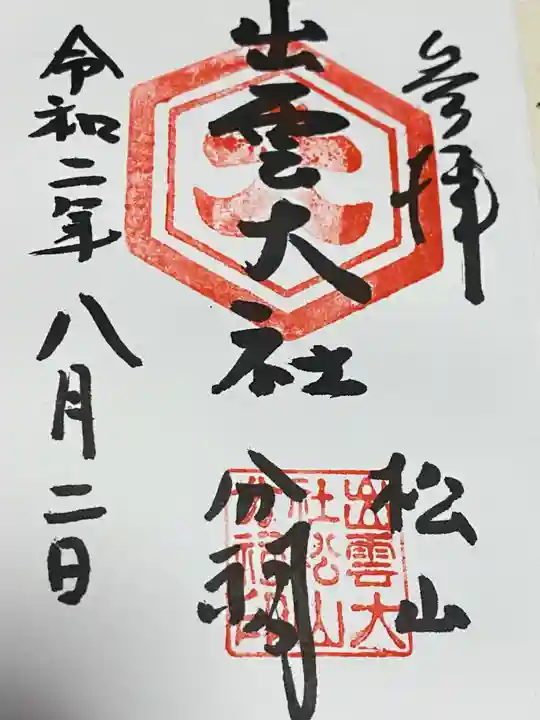 参拝
出雲大社
松山
分祠
令和二年八月二日
大
出雲大
社松山
分祠印